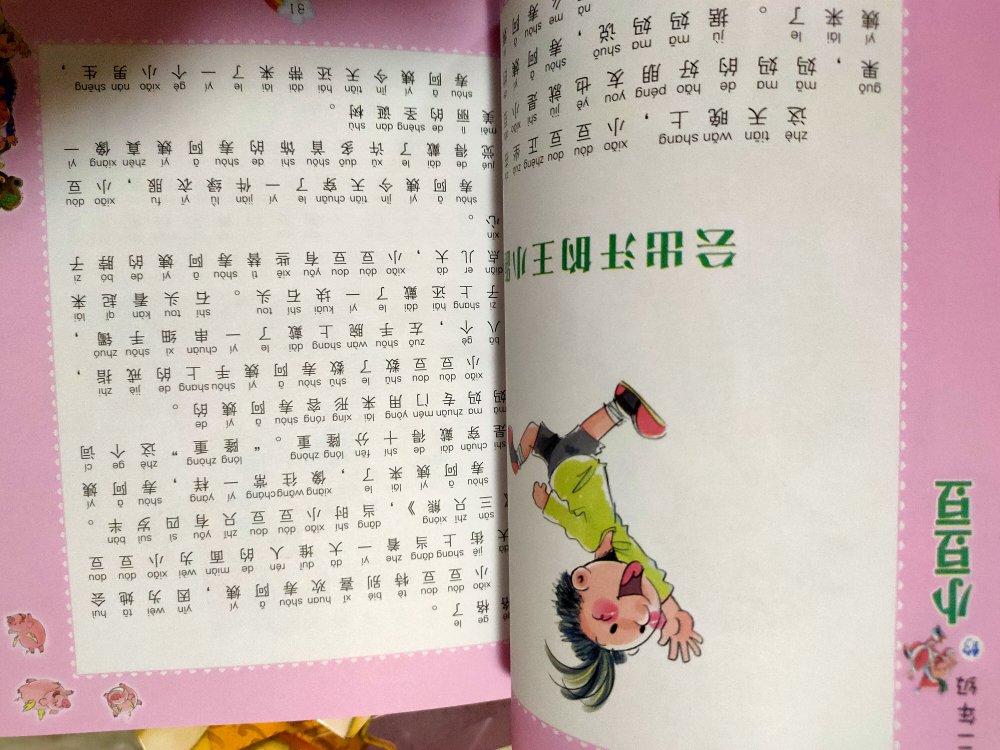 一年级的小豆豆
会出汗的王小
zhè tiān wǎn shang xiǎo dòu dou zhèng
这天晚上，小豆豆正坐
guǒ mā ma de hǎo péng you yě jiù shì
果，妈妈的好朋友也就是
yí lái le jù mā ma shuō shòu ā yí
姨来了。据妈妈说，寿阿姨
me shòu ā
么寿阿
ge le
格了。
xiǎo dòu dou tè bié xǐ huan shòu ā yí yīn wèi tā huì
小豆豆特别喜欢寿阿姨，因为她会
dà jiē shang dāng zhe yí dà duī rén de miàn wèi xiǎo dòu dou
大街上当着一大堆人的面为小豆豆
sān zhī xióng dāng shí xiǎo dòu dou zhǐ yǒu sì suì bàn
《三只熊》，当时小豆豆只有四岁半。
shòu ā yí lái le xiàng wǎng cháng yí yàng shòu ā yí
寿阿姨来了，像往常一样，寿阿姨
shì chuān dài de shí fēn lóng zhòng lóng zhòng zhè ge cí
是穿戴得十分隆重。“隆重”这个词
mā ma zhuān mén yòng lái xíng róng shòu ā yí de
妈妈专门用来形容寿阿姨的。
xiǎo dòu dou shǔ le shǔ shòu ā yí shǒu shang de jiè zhi
小豆豆数了数寿阿姨手上的戒指，
bā gè zuǒ shǒu wàn shang dài le yí chuàn xì shǒu zhuó
八个，左手腕上戴了一串细手镯，
zi shang hái dài le yí kuài shí tou shí tou kàn qǐ lái
子上还戴了一块石头。石头看起来
diǎn er dà xiǎo dòu dou yǒu xiē tì shòu ā yí de bó zi
点儿大，小豆豆有些替寿阿姨的脖子
xīn
心。
shòu ā yí jīn tiān chuān le yí jiàn lǜ yī fu xiǎo dòu
寿阿姨今天穿了一件绿衣服，小豆
jué de dài le xǔ duō shǒu shì de shòu ā yí zhēn xiàng yì
觉得戴了许多首饰的寿阿姨真像一
měi lì de shèng dàn shù
美丽的圣诞树。
shòu ā yí jīn tiān hái dài lái le yí gè xiǎo nán shēng
寿阿姨今天还带来了一个小男生，